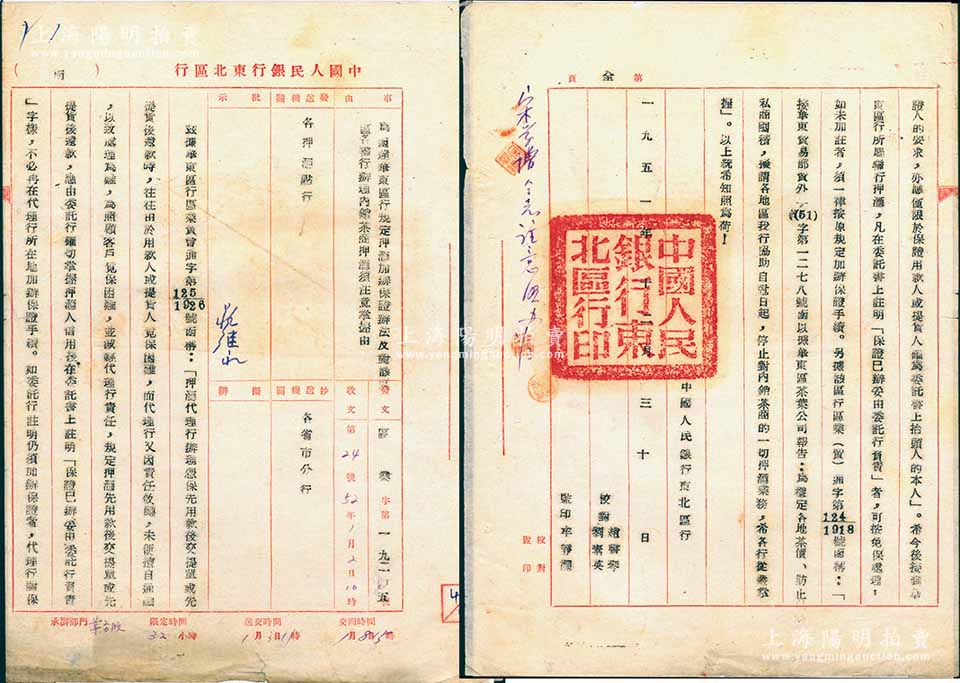 中國人民銀行東北區行
事由
發送機關
批示
為函達華東區行規定押匯加辦保證辦法及
區各行辦理內銷茶商押匯須注意掌握由
各押匯點行
發文
區業字第一九二五
收文第24號52年1月2日10時
抄送機關
擬辦
各省市分行
茲據華東區行區業貿會通字第125/1926號函稱：「押匯代理行辦理憑保先用款後交提單或先
提貨後還款時，往往由於用款人或提貨人覓保困難，而代理行又因責任攸關，未便擅自通融
，以致處理為難，為照顧客戶覓保困難，並減輕代理行責任，規定押匯先用款後交提單或先
提貨後還款，應由委託行確切掌握押匯人信用後在委託書上註明「保證已辦妥由委託行負責
」字樣，不必再在代理行所在地加辦保證手續。如委託行註明仍須加辦保證者，代理行對保
承辦部門
限定時間 32小時
送交時間
交辦時間
第全頁
證人的要求，亦應僅限於保證用款人或提貨人確為委託書上抬頭人的本人」。希今後接華
東區行所屬聯行押匯，凡在委託書上註明「保證已辦妥由委託行負責」者，可按免保處理，
如未加註者，須一律按原規定加辦保證手續。另據該區行區業（貿）通字第124/1918號函稱：「
接華東貿易部貿外(51)字第一二七八號函以據華東區茶葉公司報告：為穩定各地茶價、防止
私商囤積，擬請各地區我行協助自即日起，停止對內銷茶商的一切押匯業務，希各行從嚴掌
握」。以上統希知照為荷！
中國人民銀行東北區行
一九五一年十二月三十日
中國人民銀行東北區行印
校對
監印
上海陽明拍賣
www.yangmingauction.com